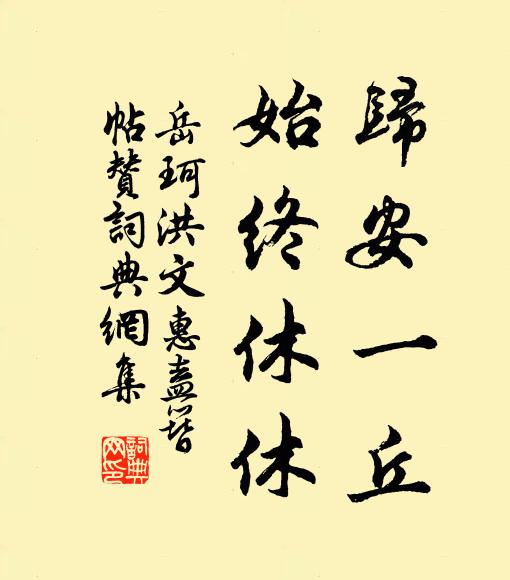 歸安一丘
始終休休
岳珂洪文惠盍簪
帖贊詞典網集
詞典網印